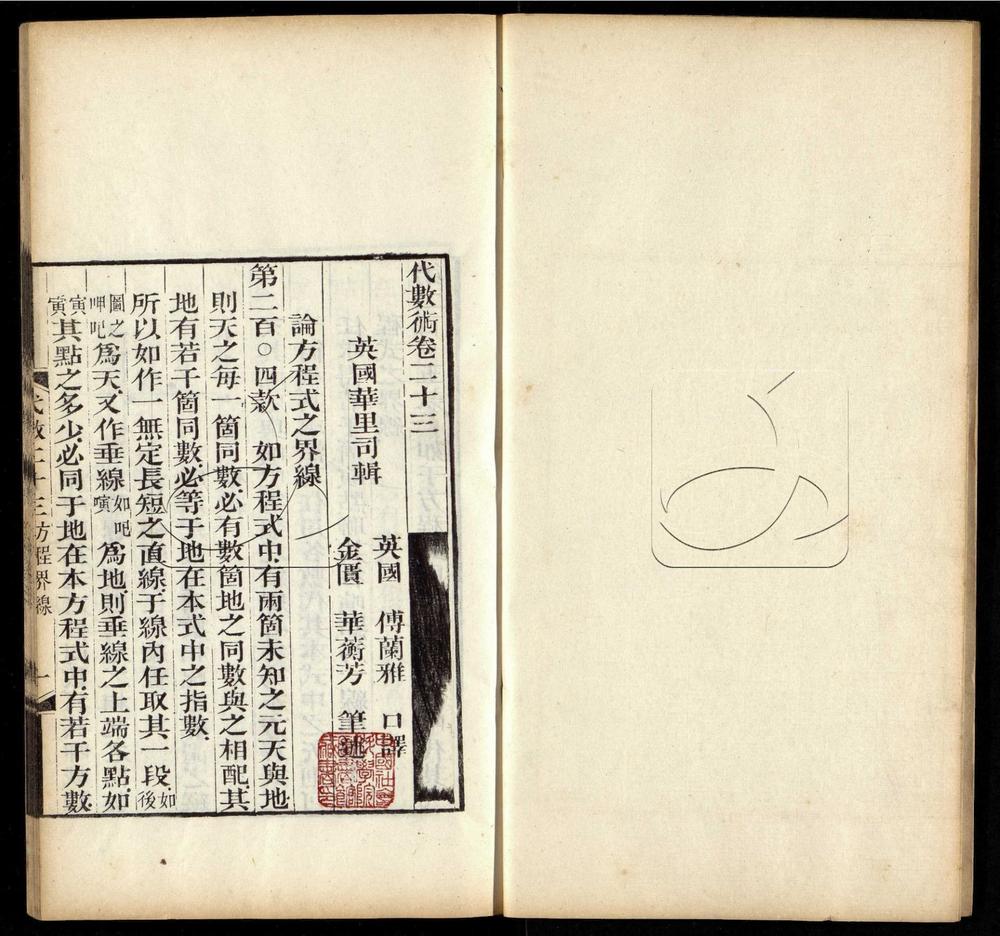 代數術卷二十三
英國華里司輯
英國 傅蘭雅 口譯
金匱 華蘅芳 筆述
論方程式之界線
第二百〇四款 如方程式中有兩箇未知之元天與地
則天之每一箇同數必有數箇地之同數與之相配其
地有若干箇同數必等于地在本式中之指數
所以如作一無定長短之直線于線內任取其一段如後
圖之呷吧爲天又作垂線如吧寅爲地則垂線之上端各點如
寅寅其點之多少必同于地在本方程式中有若干方數
代數二十三 方程界線 一